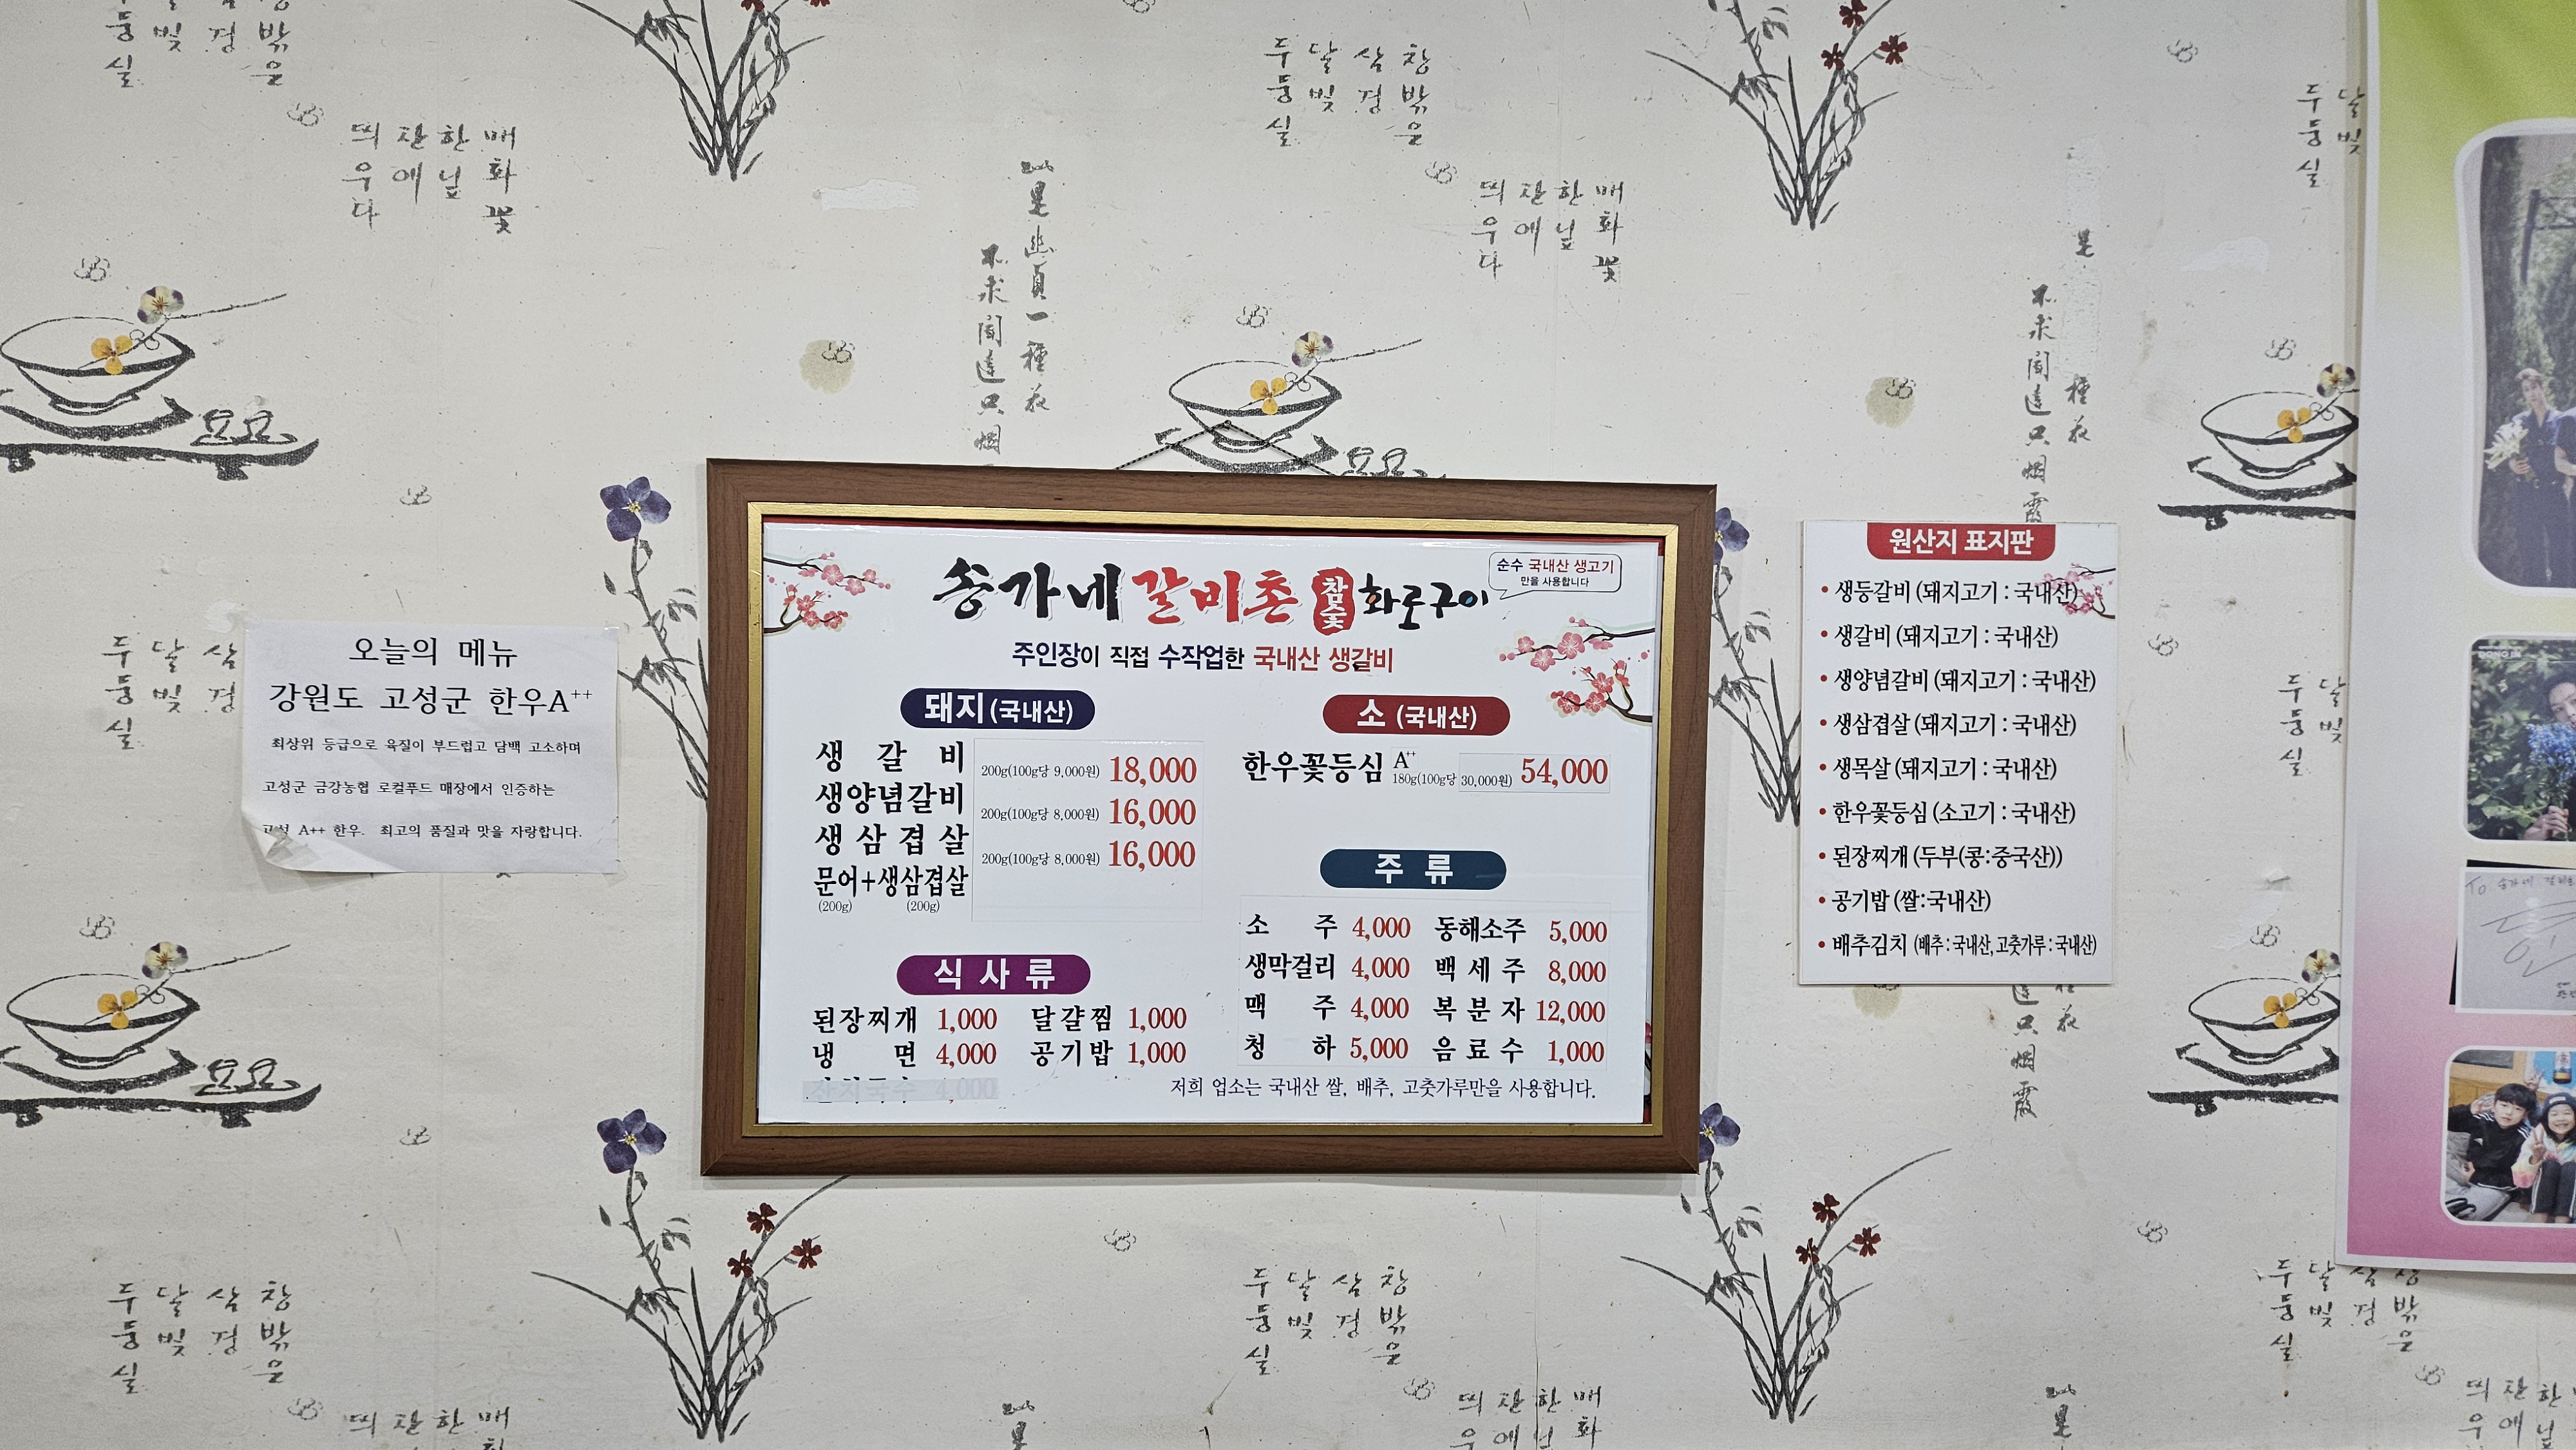 오늘의 메뉴
강원도 고성군 한우A++
최상위 등급으로 육질이 부드럽고 담백 고소하며
고성군 금강농협 로컬푸드 매장에서 인증하는
고성 A++ 한우. 최고의 품질과 맛을 자랑합니다.
송가네갈비촌 참숯 화로구이
순수 국내산 생고기
만을 사용합니다
주인장이 직접 수작업한 국내산 생갈비
돼지(국내산)
생갈비 200g(100g당 9,000원) 18,000
생양념갈비 200g(100g당 8,000원) 16,000
생삼겹살 200g(100g당 8,000원) 16,000
문어+생삼겹살
(200g) (200g)
식사류
된장찌개 1,000 달걀찜 1,000
냉면 4,000 공기밥 1,000
4,000
소 (국내산)
한우꽃등심 A++ 180g(100g당 30,000원) 54,000
주류
소주 4,000 동해소주 5,000
생막걸리 4,000 백세주 8,000
맥주 4,000 복분자 12,000
청하 5,000 음료수 1,000
저희 업소는 국내산 쌀, 배추, 고춧가루만을 사용합니다.
원산지 표지판
• 생등갈비 (돼지고기 : 국내산)
• 생갈비 (돼지고기 : 국내산)
• 생양념갈비 (돼지고기 : 국내산)
• 생삼겹살 (돼지고기 : 국내산)
• 생목살 (돼지고기 : 국내산)
• 한우꽃등심 (소고기 : 국내산)
• 된장찌개 (두부(콩:중국산))
• 공기밥 (쌀:국내산)
• 배추김치 (배추 : 국내산, 고춧가루 : 국내산)
창밖은
삼경
달빛
두둥실
매화꽃
한닢
잔에
띄우다
幽貞一種花
不求聞達只烟霞